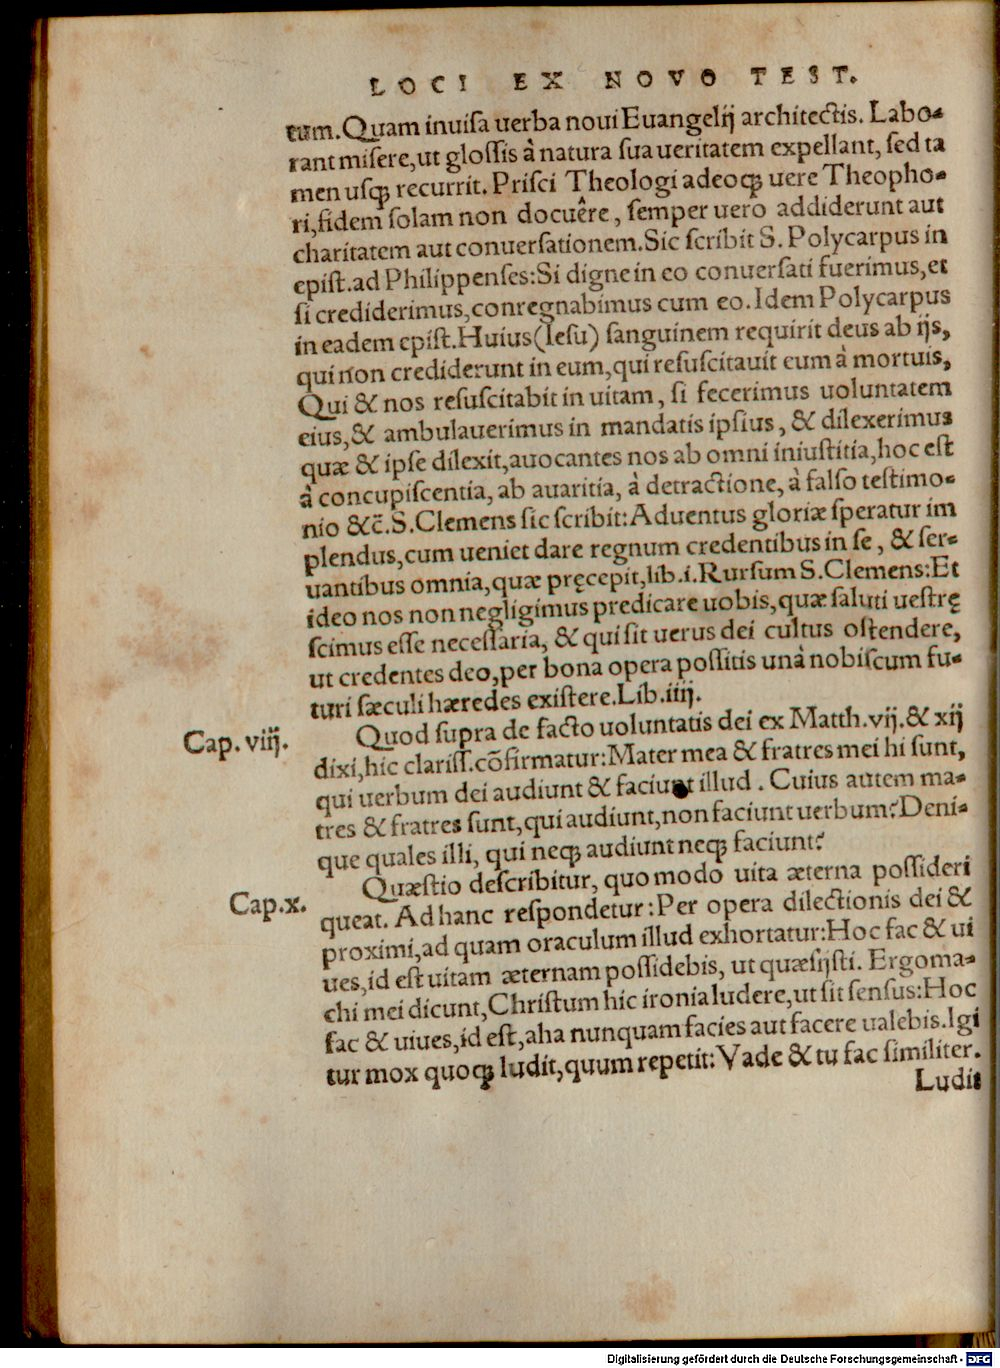 LOCI EX NOVO TEST.
tum. Quam inuisa uerba noui Euangelij architectis. Labo-
rant misere, ut glossis à natura sua ueritatem expellant, sed ta
men usqꝫ recurrit. Prisci Theologi adeoqꝫ uere Theopho-
ri, fidem solam non docuêre, semper uero addiderunt aut
charitatem aut conuersationem. Sic scribit S. Polycarpus in
epist. ad Philippenses: Si digne in eo conuersati fuerimus, et
si crediderimus, conregnabimus cum eo. Idem Polycarpus
in eadem epist. Huius (Iesu) sanguinem requirit deus ab ijs,
qui non crediderunt in eum, qui resuscitauit eum à mortuis,
Qui & nos resuscitabit in uitam, si fecerimus uoluntatem
eius, & ambulauerimus in mandatis ipsius, & dilexerimus
quæ & ipse dilexit, auocantes nos ab omni iniustitia, hoc est
à concupiscentia, ab auaritia, à detractione, à falso testimo-
nio &c̃. S. Clemens sic scribit: Aduentus gloriæ speratur im
plendus, cum ueniet dare regnum credentibus in se, & ser-
uantibus omnia, quæ pręcepit, lib. i. Rursum S. Clemens: Et
ideo nos non negligimus predicare uobis, quæ saluti uestrę
scimus esse necessaria, & qui sit uerus dei cultus ostendere,
ut credentes deo, per bona opera possitis unà nobiscum fu-
turi sæculi hæredes existere. Lib. iiij.
Cap. viij. Quod supra de facto uoluntatis dei ex Matth. vij. & xij
dixi, hic clariss. cõfirmatur: Mater mea & fratres mei hi sunt,
qui uerbum dei audiunt & faciunt illud. Cuius autem ma-
tres & fratres sunt, qui audiunt, non faciunt uerbum? Deni-
que quales illi, qui neqꝫ audiunt neqꝫ faciunt?
Cap. x. Quæstio describitur, quo modo uita æterna possideri
queat. Ad hanc respondetur: Per opera dilectionis dei &
proximi, ad quam oraculum illud exhortatur: Hoc fac & ui
ues, id est uitam æternam possidebis, ut quæsijsti. Ergoma-
chi mei dicunt, Christum hic ironia ludere, ut sit sensus: Hoc
fac & uiues, id est, aha nunquam facies aut facere ualebis. Igi
tur mox quoqꝫ ludit, quum repetit: Vade & tu fac similiter.
Ludit
Digitalisierung gefördert durch die Deutsche Forschungsgemeinschaft - DFG